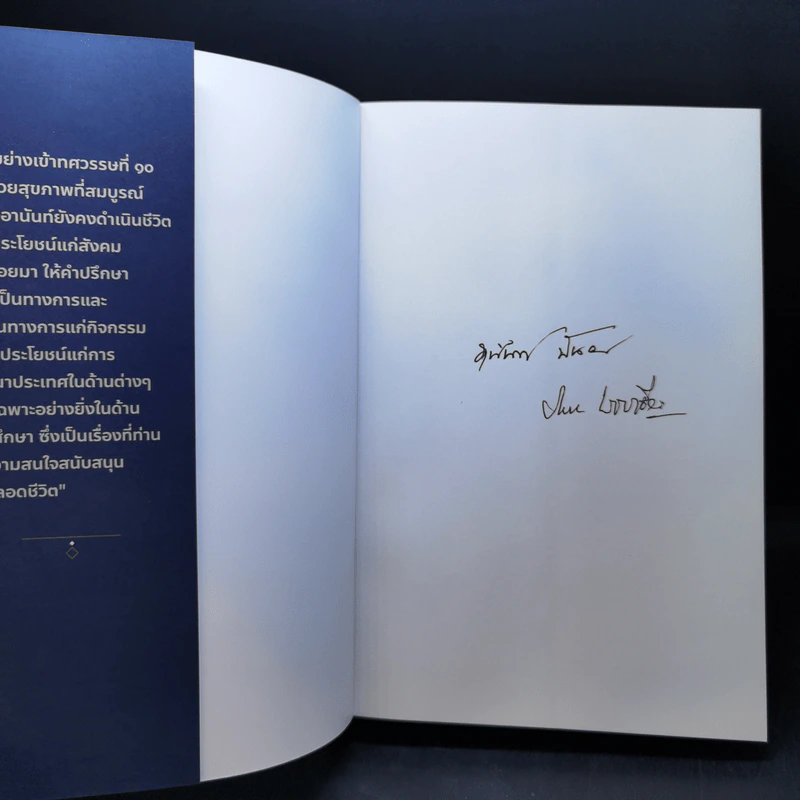 ย่างเข้าทศวรรษที่ ๑๐
วยสุขภาพที่สมบูรณ์
อานันท์ยังคงดำเนินชีวิต
ระโยชน์แก่สังคม
อยมา ให้คำปรึกษา
เป็นทางการและ
นทางการแก่กิจกรรม
ประโยชน์แก่การ
นาประเทศในด้านต่างๆ
ฉพาะอย่างยิ่งในด้าน
ศึกษา ซึ่งเป็นเรื่องที่ท่าน
วามสนใจสนับสนุน
ลอดชีวิต"